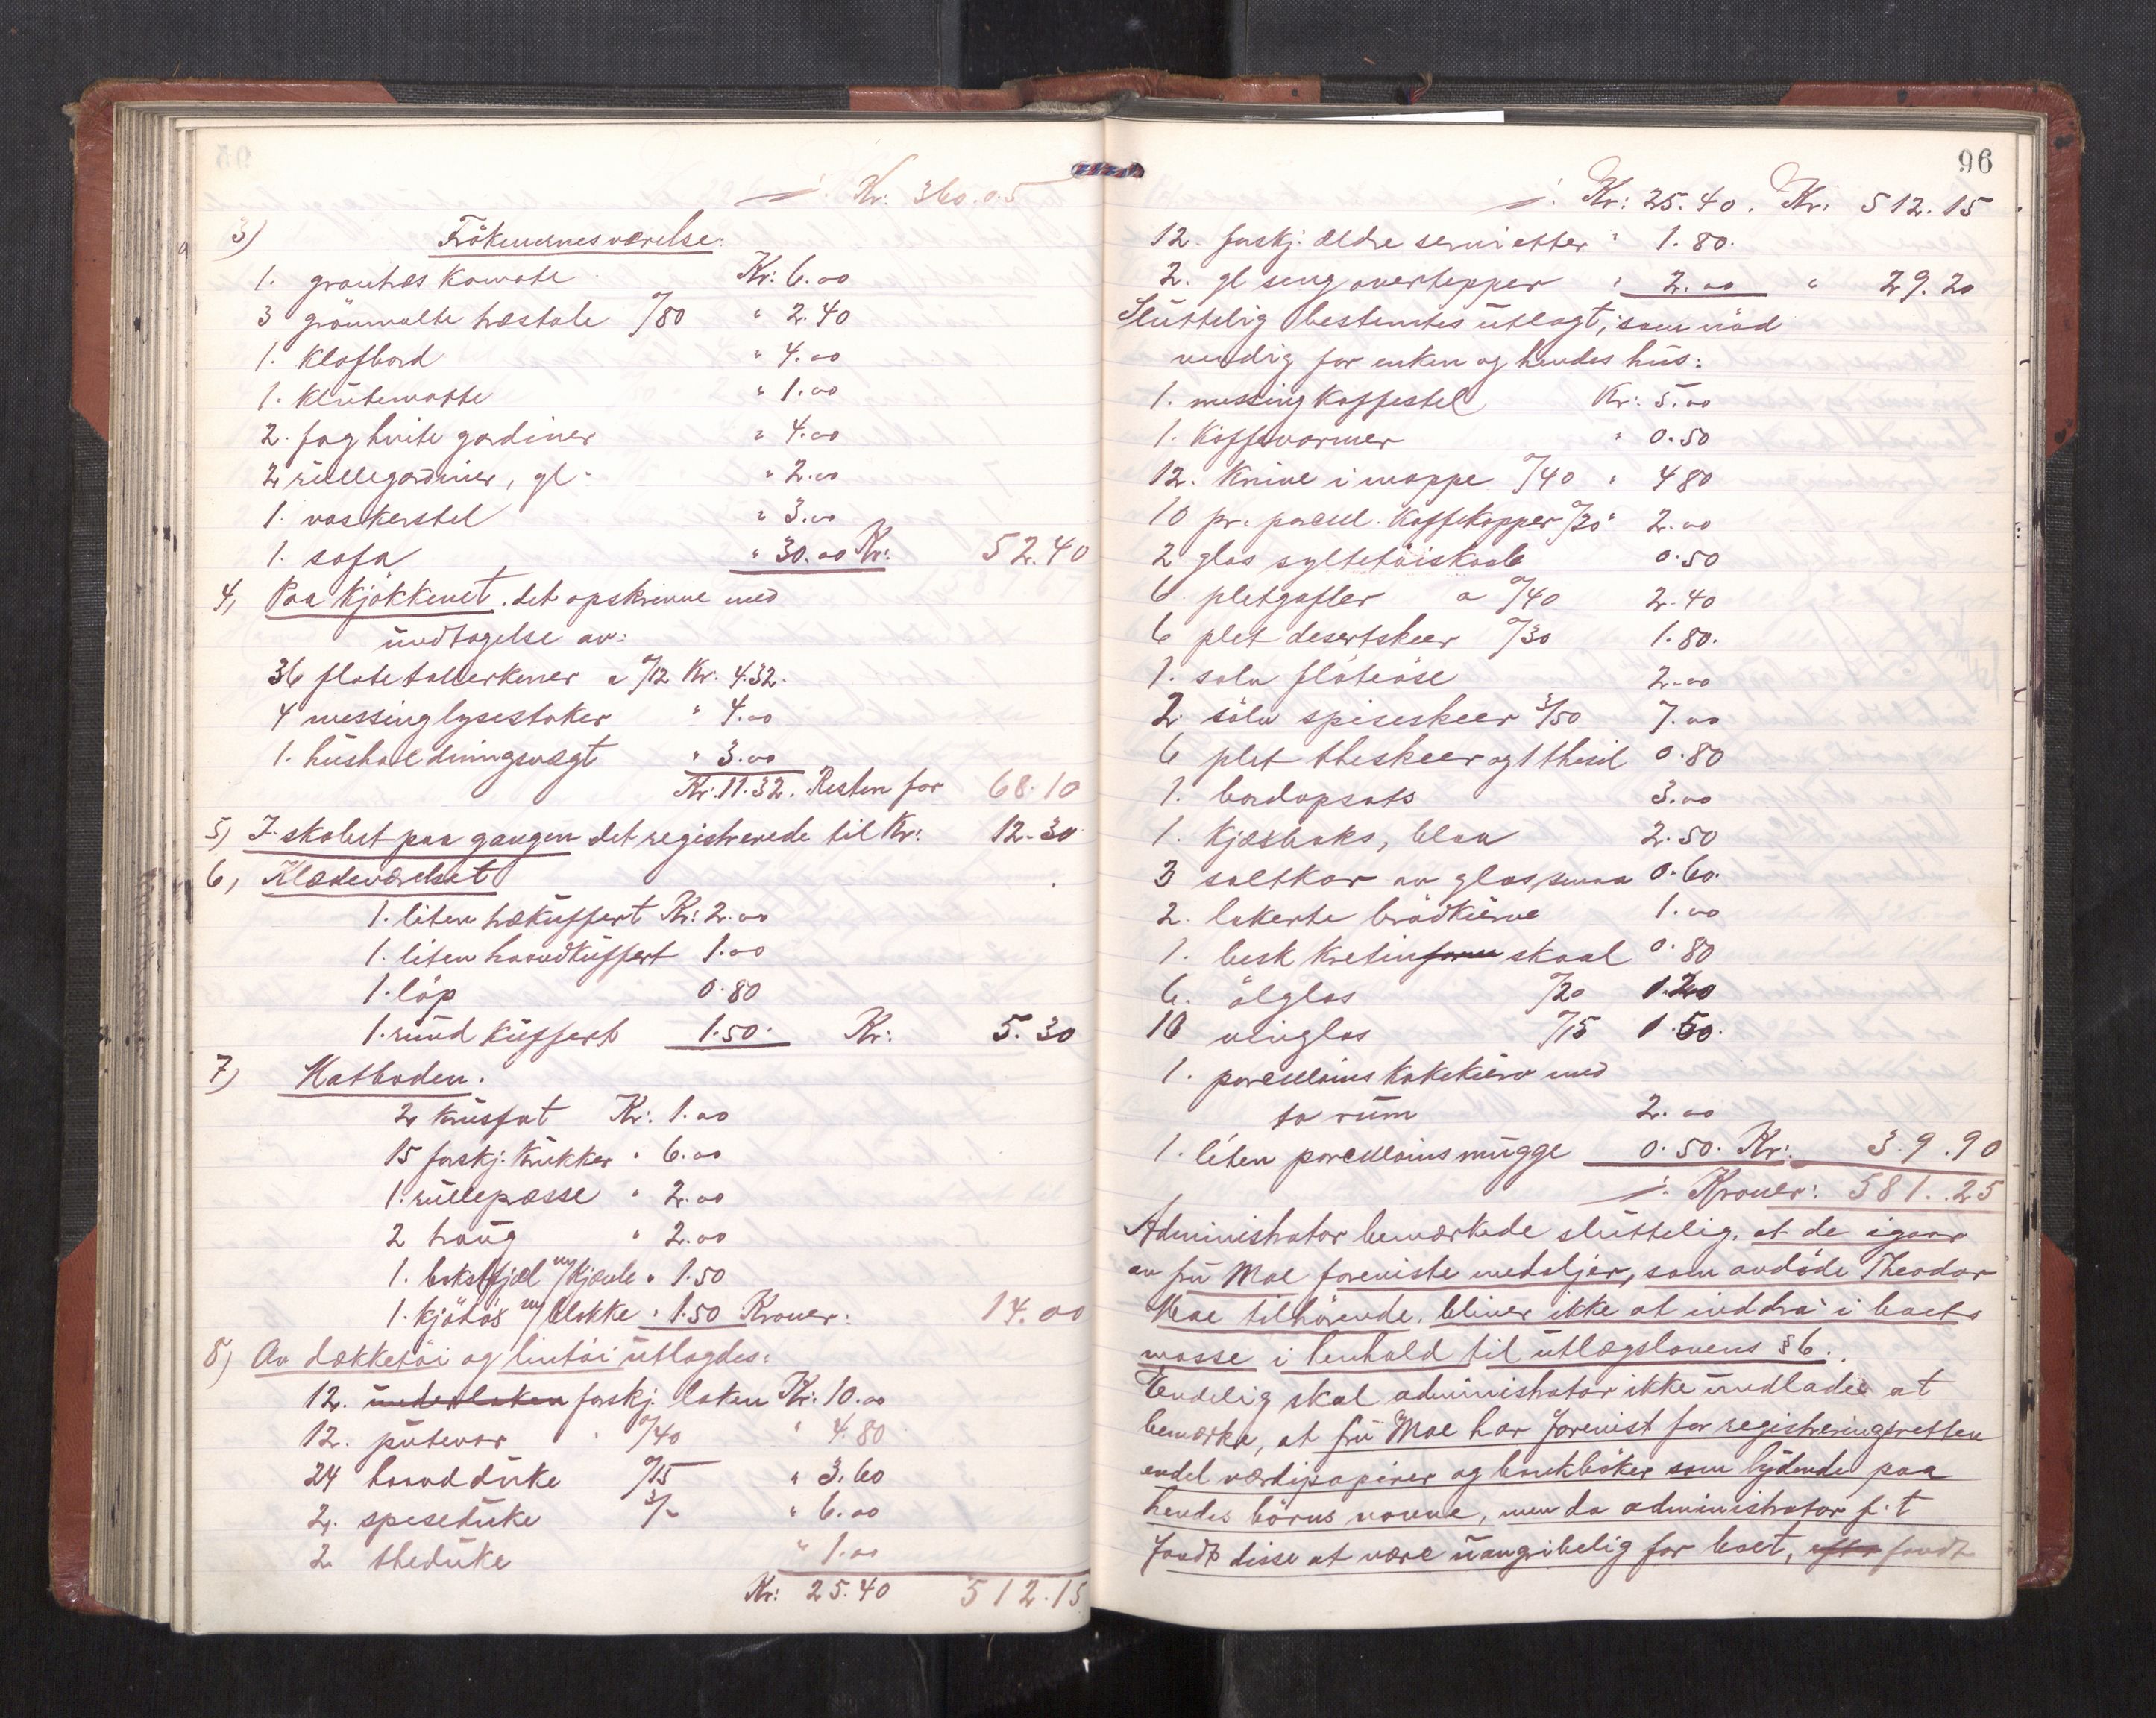 ÷ Kr: 360.05
3) Frökenernes værelse:
1. grantræs komode Kr: 6.00
3 grönmalte træstole %80 " 2.40
1. Klafbord " 4.00
1. Klütematte " 1.00
2. fag hvite gardiner " 4.00
2 rüllegardiner, gl. " 2.00
1. vaskerstel " 3.00
1. sofa " 30.00 Kr: 52.40
4, Paa Kjökkenet. det opskrevne med
ündtagelse av:
36 flate tallerkener a %12 Kr. 4.32.
4 messinglysestaker " 4.00
1. hüsholdningsvægt " 3.00
Kr. 11.32. Resten for 68.10
5) I skabet paa gangen det registrerede til Kr: 12.30
6, Klædeværelset
1. liten trækuffert Kr: 2.00
1. liten haandküffert 1.00
1. löp 0.80
1. ründ Küffert 1.50. Kr: 5.30
7) Matboden.
2 krüsfat Kr: 1.00
15 forskj. Krükker " 6.00
1. rüllepresse " 2.00
2 traüg " 2.00
1. bakstfjæl m/kjævle " 1.50
1. kjötös m/blokke " 1.50 Kroner: 14.00
8) Av dækketöi og lintöi ütlagdes:
12. underlaken forskj. laken Kr: 10.00
12. pütevar %40 " 4.80
24 haanddüke %15 " 3.60
2. spisedüke 3/- " 6.00
2 thedüke " 1.00
Kr: 25.40 512.15
96
÷ Kr: 25.40. Kr. 512.15
12. forskj. ældre servietter " 1.80.
2. gl seng overtepper " 2.00 " 29.20
Slüttelig bestemtes ütlagt, som nöd
vendig for enken og hendes hüs:
1. messing kaffestel Kr: 5.00
1. Kaffevarmer " 0.50
12. Knive i mappe %40 " 4 80
10 pr. porcell. Kaffekopper %20 " 2.00
2 glas syltetöiskaale 0.50
6 pletgafler a %40 2.40
6 plet desertskeer %30 1.80.
1. sölv flöteöse 2.00
2. sölv spiseskeer 3/50 7.00
6 plet theskeer og 1 thesil 0.80
1. bordopsats 3.00
1. Kjæxboks, blaa 2.50
3 saltkar av glas, smaa 0.60.
2. lakerte brödkürve 1.00
1. besk Kretin skaal 0.80
6. ölglas %20 1.20
10 vinglas %15 1.50.
1. porcellains Kakekürv med
to rüm 2.00
1. liten porcellains mügge 0.50. Kr: 39.90
÷ Kroner: 581.25
Administrator bemærkede slüttelig, at de igaar
av frü Moe foreviste medaljer, som avdöde Theodor
Moe tilhörende, bliver ikke at inddra i boets
masse i henhold til ütlægslovens § 6.
Endelig skal administrator ikke ündlade at
bemærke, at frü Moe har forevist for registreringsretten
endel værdipapirer og bankböker som lydende paa
hendes börns navne, men da administrator f.t
fandt disse at være üangribelig for boet, efter fandt